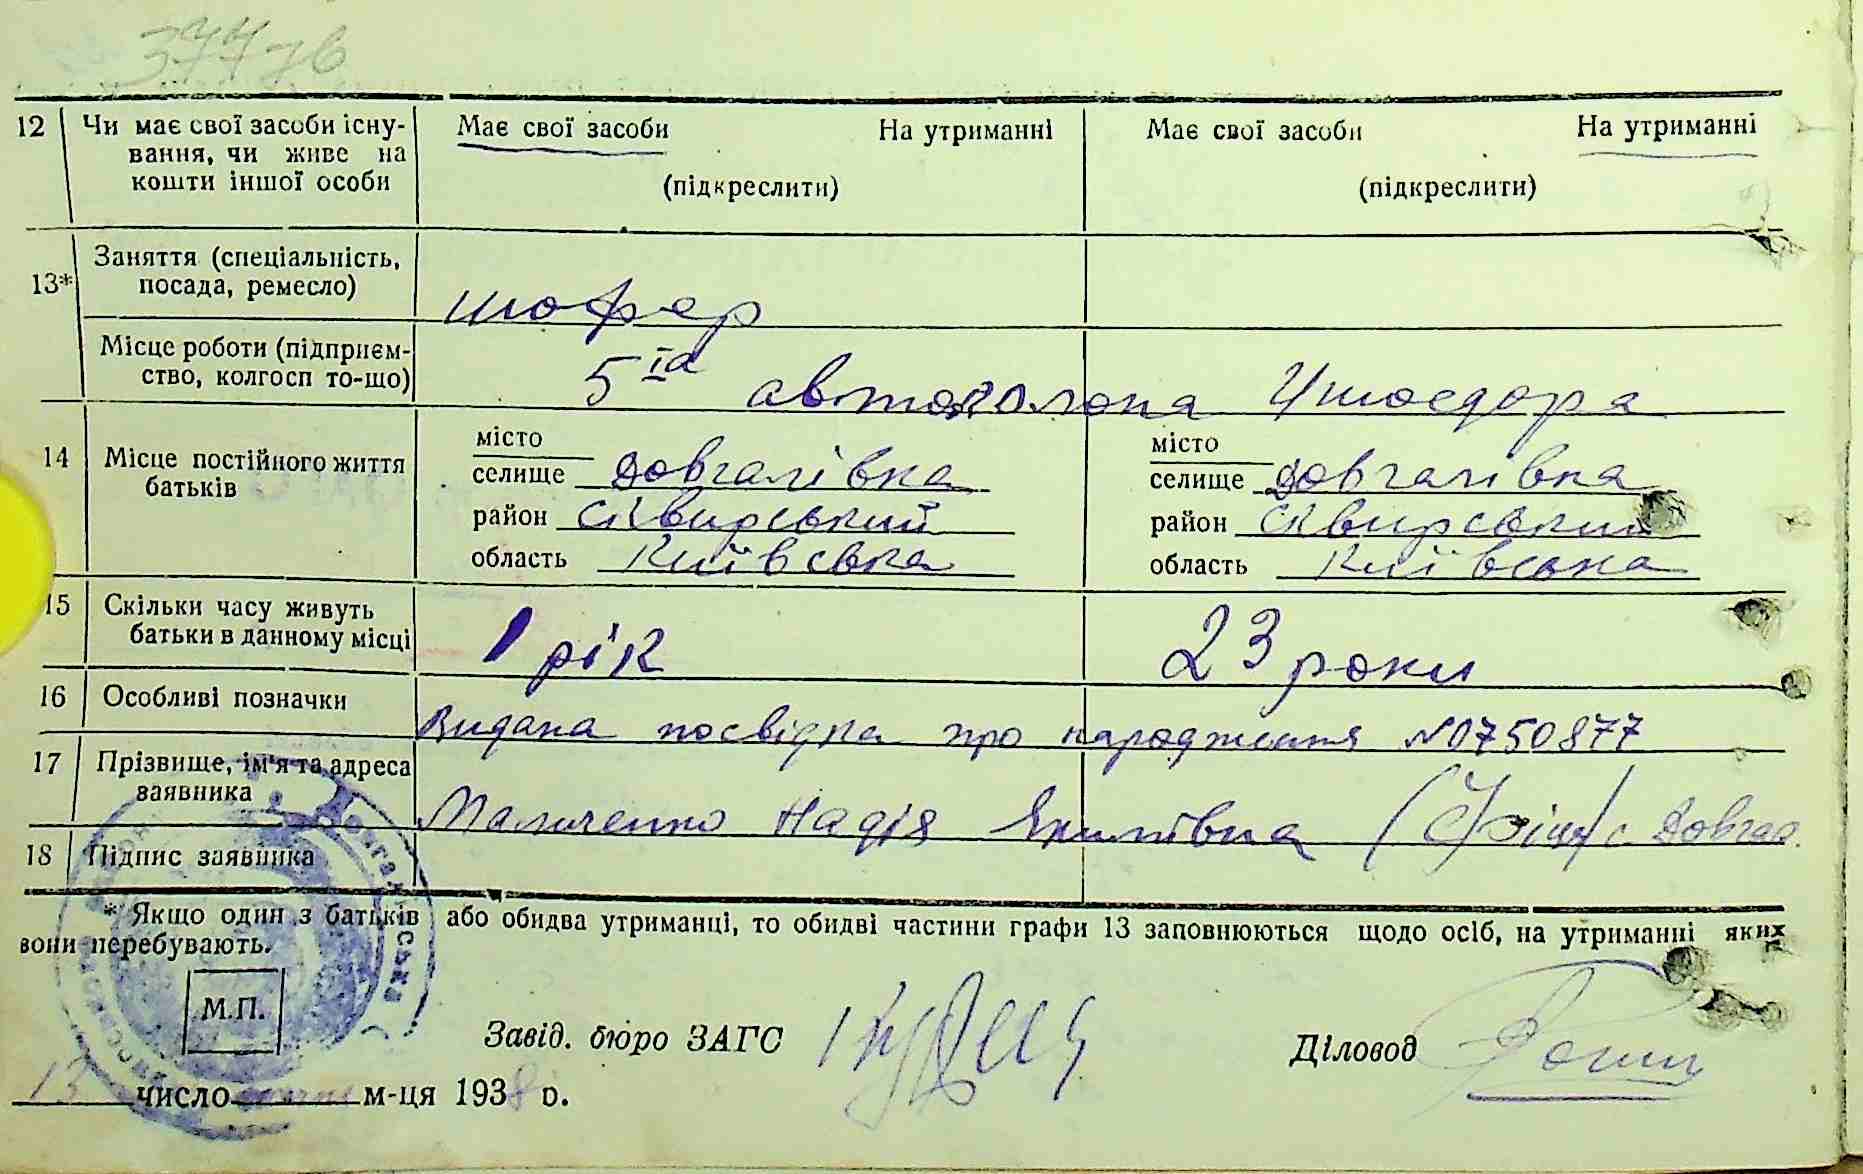 377зв
12 Чи має свої засоби існу- Має свої засоби На утриманні Має свої засоби На утриманні
вання, чи живе на
кошти іншої особи (підкреслити) (підкреслити)
Заняття (спеціальність,
13* посада, ремесло) шофер
Місце роботи (підприєм-
ство, колгосп то-що) 5 Iа автоколона Ушосдора
14 Місце постійного життя місто місто
батьків селище Довгалівка селище Довгалівка
район Сквирський район Сквирський
область Київська область Київська
15 Скільки часу живуть
батьки в данному місці 1 рік 23 роки
16 Особливі позначки Видана посвідка про народження №0750877
17 Прізвище, ім'я та адреса
заявника Надія с. Довгал.
18 Підпис заявника
* Якщо один з батьків або обидва утриманці, то обидві частини графи 13 заповнюються щодо осіб, на утриманні яких
вони перебувають.
М.П.
Завід. бюро ЗАГС Діловод
13 число м-ця 1938 р.